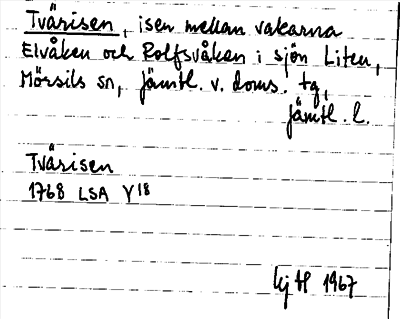 Tvärisen, isen mellan vakarna
Elvåken och Rolfsvåken i sjön Liten,
Mörsils sn, Jämtl. v. doms. tg,
Jämtl. l.
Tvärisen
1768 LSA Y18
kj H 1967